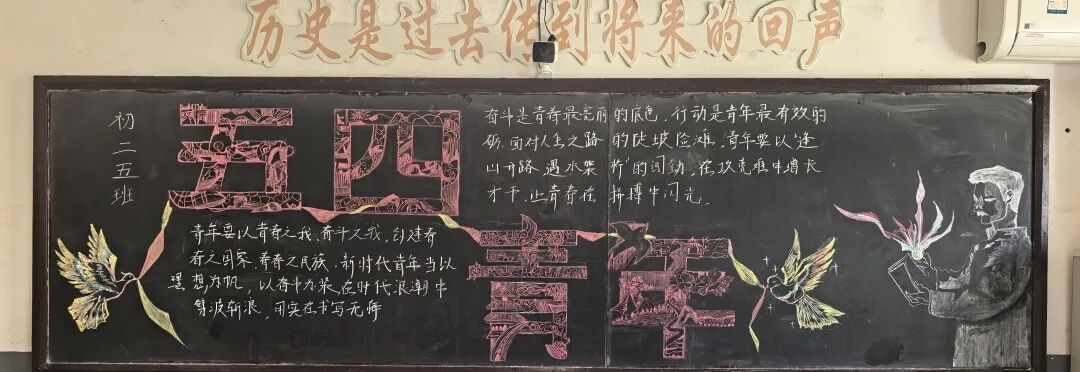 历史是过去传到将来的回声
初二五班
五四
奋斗是青春最亮丽的底色,行动是青年最有效的
砺.面对人生之路的陡坡险滩,青年要以“逢
山开路,遇水架桥”的闯劲,在攻克难中增长
才干,让青春在拼搏中闪光.
青年要以青春之我、奋斗之我,创建青
春之国家,青春之民族.新时代青年当以
理想为帆,以奋斗为桨,在时代浪潮中
劈波斩浪,用实在书写无悔
青年